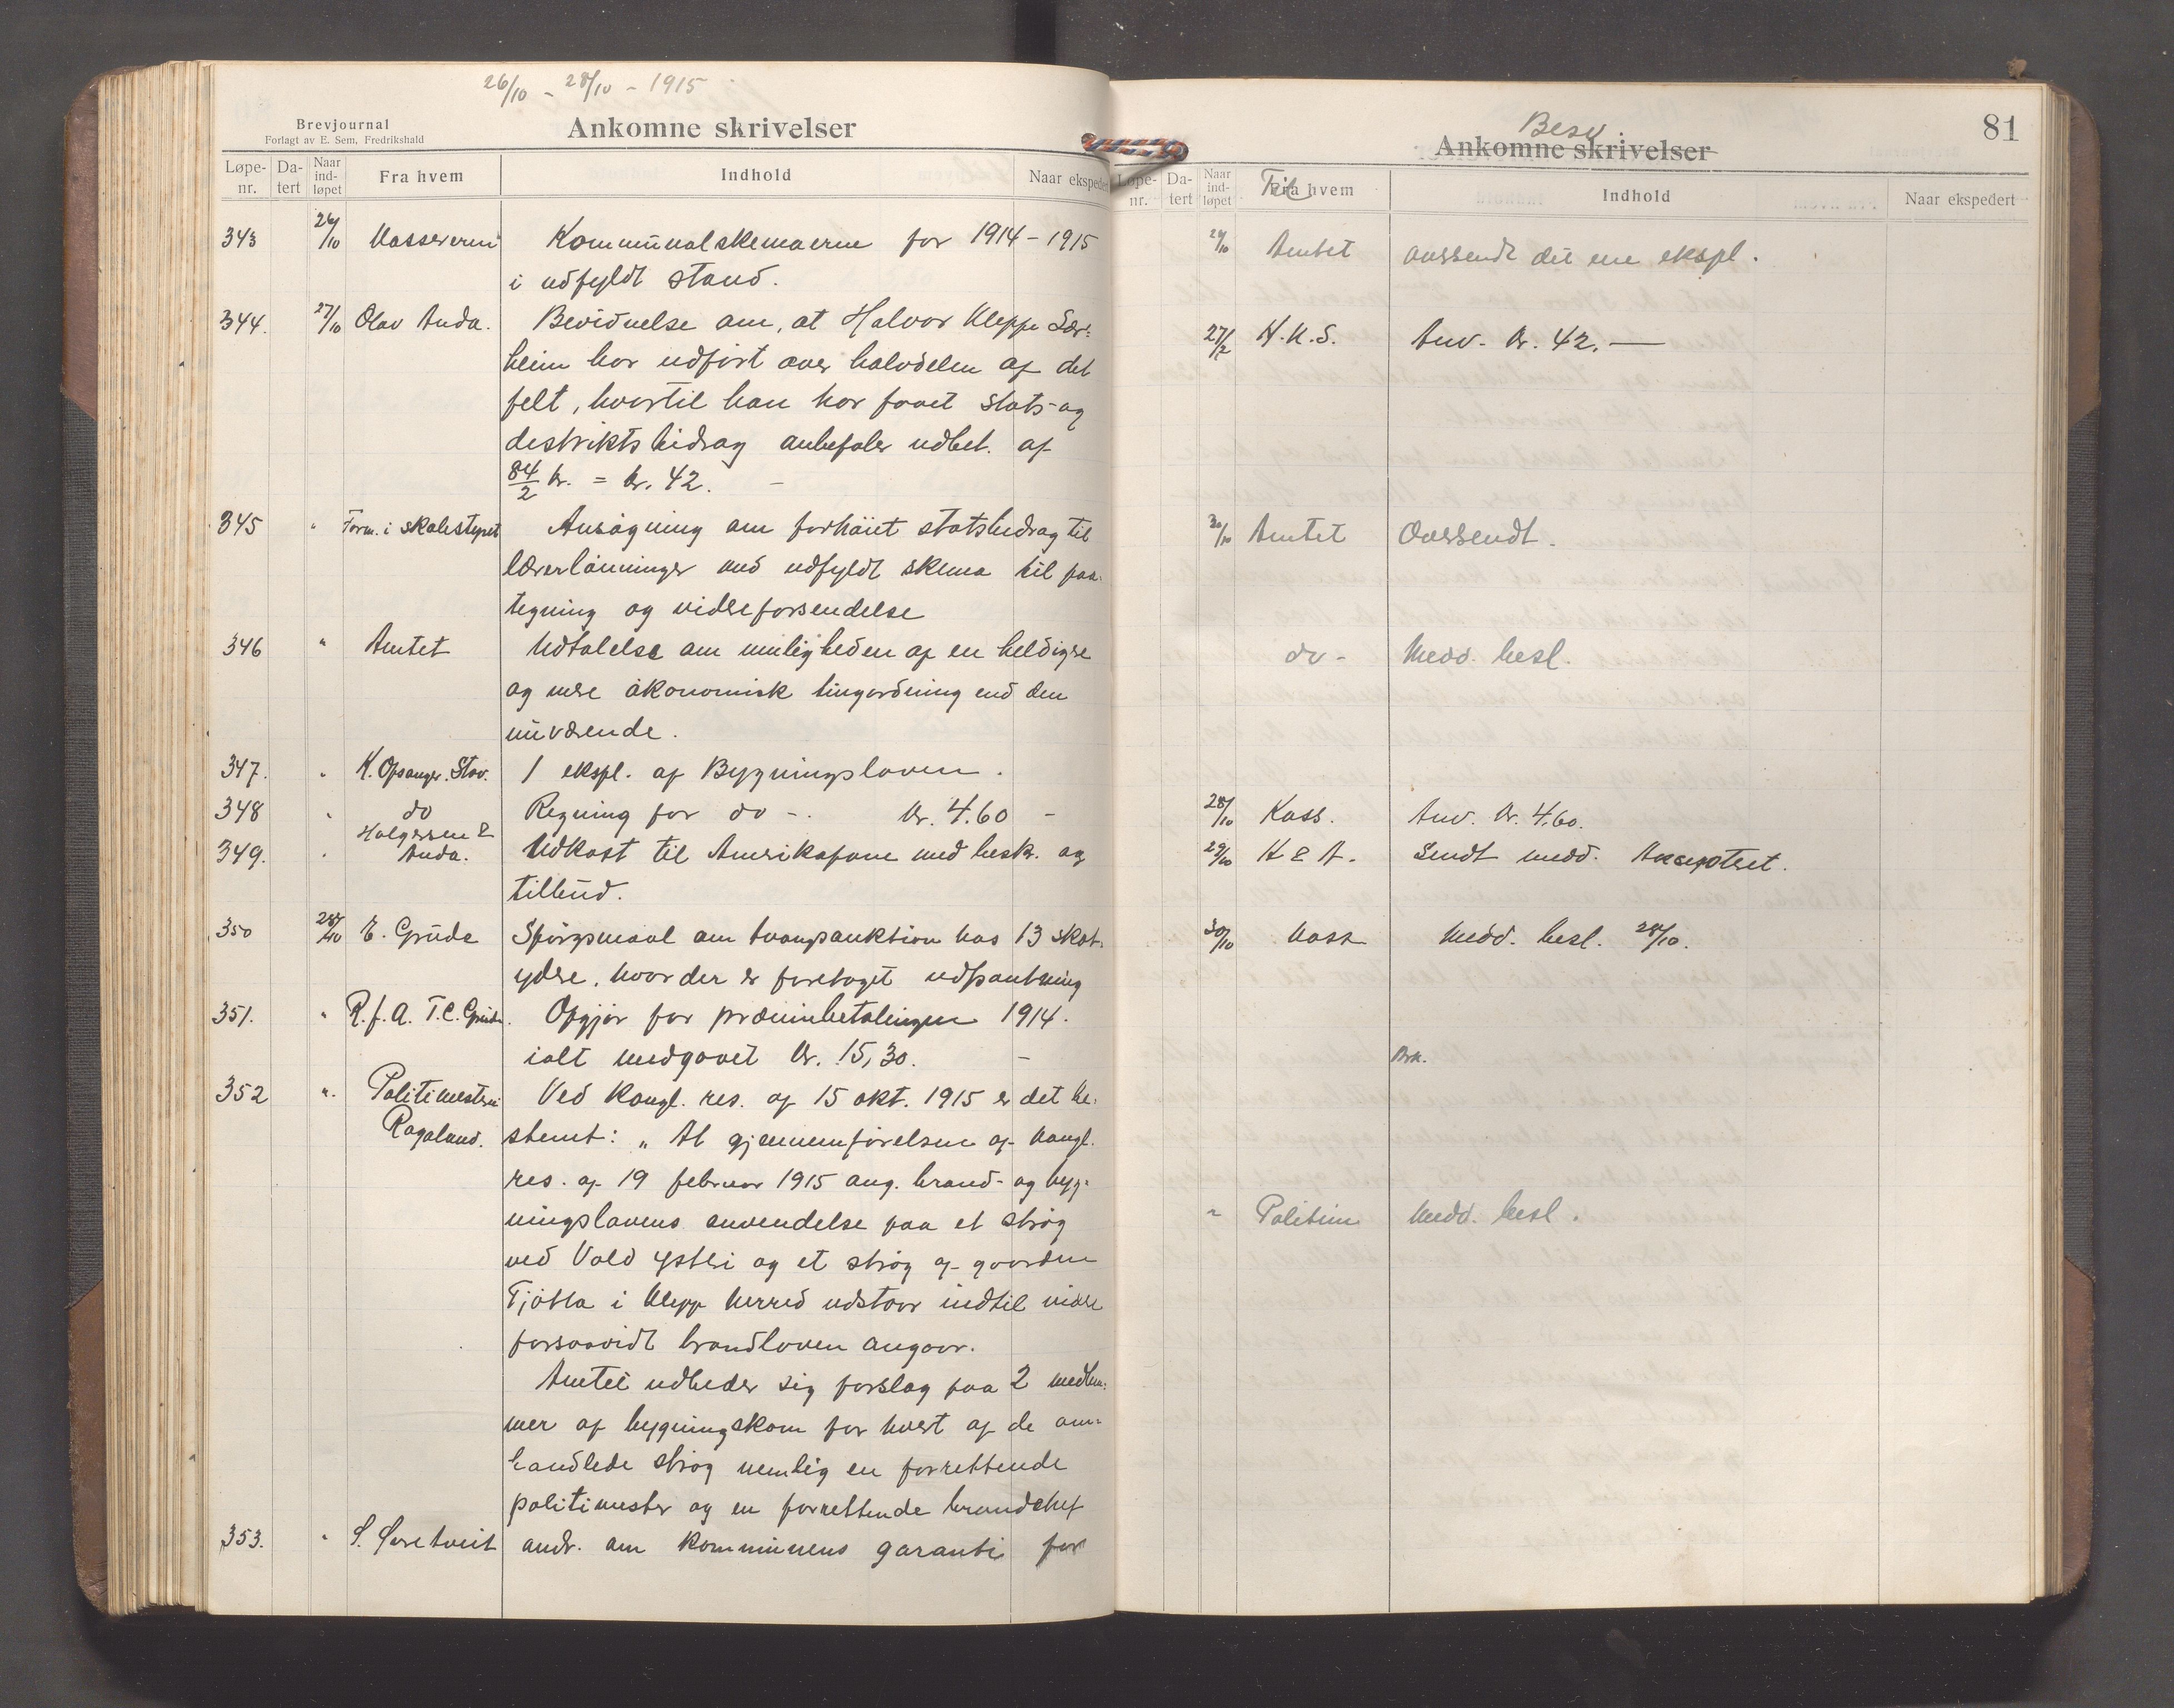 26/10 - 28/10 - 1915
Brevjournal
Forlagt av E. Sem, Fredrikshald
Ankomne skrivelser
Løpe-nr. Da-tert Naar ind-løpet Fra hvem Indhold Naar ekspedert
343 26/10 Kassereren Kommunalskemaerne for 1914-1915
i udfyldt stand.
344. 27/10 Olav Anda. Bevidnelse om, at Halvor Kleppe Sær-
heim har udført over halvdelen af det
felt, hvortil han har faaet stats- og
destriktsbidrag anbefaler udbet. af
84/2 kr. = kr. 42. -
345 " Form. i skolestyret Ansøgning om forhøiet statsbidrag til
lærerlønninger med udfyldt skema til paa-
tegning og videreforsendelse
346 " Amtet Udtalelse om muligheden af en heldigere
og mere økonomisk tingordning end den
nuværende.
347. " K. Opsanger. Stav. 1 ekspl. af Bygningsloven.
348 " do Regning for do -. kr. 4.60 -
349. " Holgersen & Anda. Udkast til Amerikafane med besk. og
tilbud.
350 28/10 E. Grude Spørgsmaal om tvangsauktion hos 13 skat-
ydere, hvor der er foretaget udpantning
351. " R.f.A. T.C. Grude. Opgjør for præmiebetalingen 1914.
ialt medgaaet kr. 15,30. -
352 " Politimesteren Ved kongl. res. af 15 okt. 1915 er det be-
Rogaland. stemt: „At gjennemførelsen af kongl.
res. af 19 februar 1915 ang. brand- og byg-
ningslovens anvendelse paa et strøg
ved Vold ysteri og et strøg af gaarden
Tjøtta i Klepp herred udstaar indtil videre
forsaavidt brandloven angaar.
Amtet udbeder sig forslag paa 2 medlem-
mer af bygningskom for hvert af de om-
handlede strøg nemlig en forrettende
politimester og en forrettende brandchef
353. " andr. om kommunens garanti for
81
Besv.
Ankomne skrivelser
Løpe-nr. Da-tert Naar ind-løpet Fra hvem Indhold Naar ekspedert
Til
29/10 Amtet oversendt det ene ekspl.
27/12 H.K.S. Anv. kr. 42. -
30/10 Amtet Oversendt.
do - Medd. besl.
28/10 Kass. Anv. kr. 4,60.
29/10 H & A. Sendt medd. Acceptert.
30/10 Kass Medd. besl. 28/10.
" Politim Medd. besl.